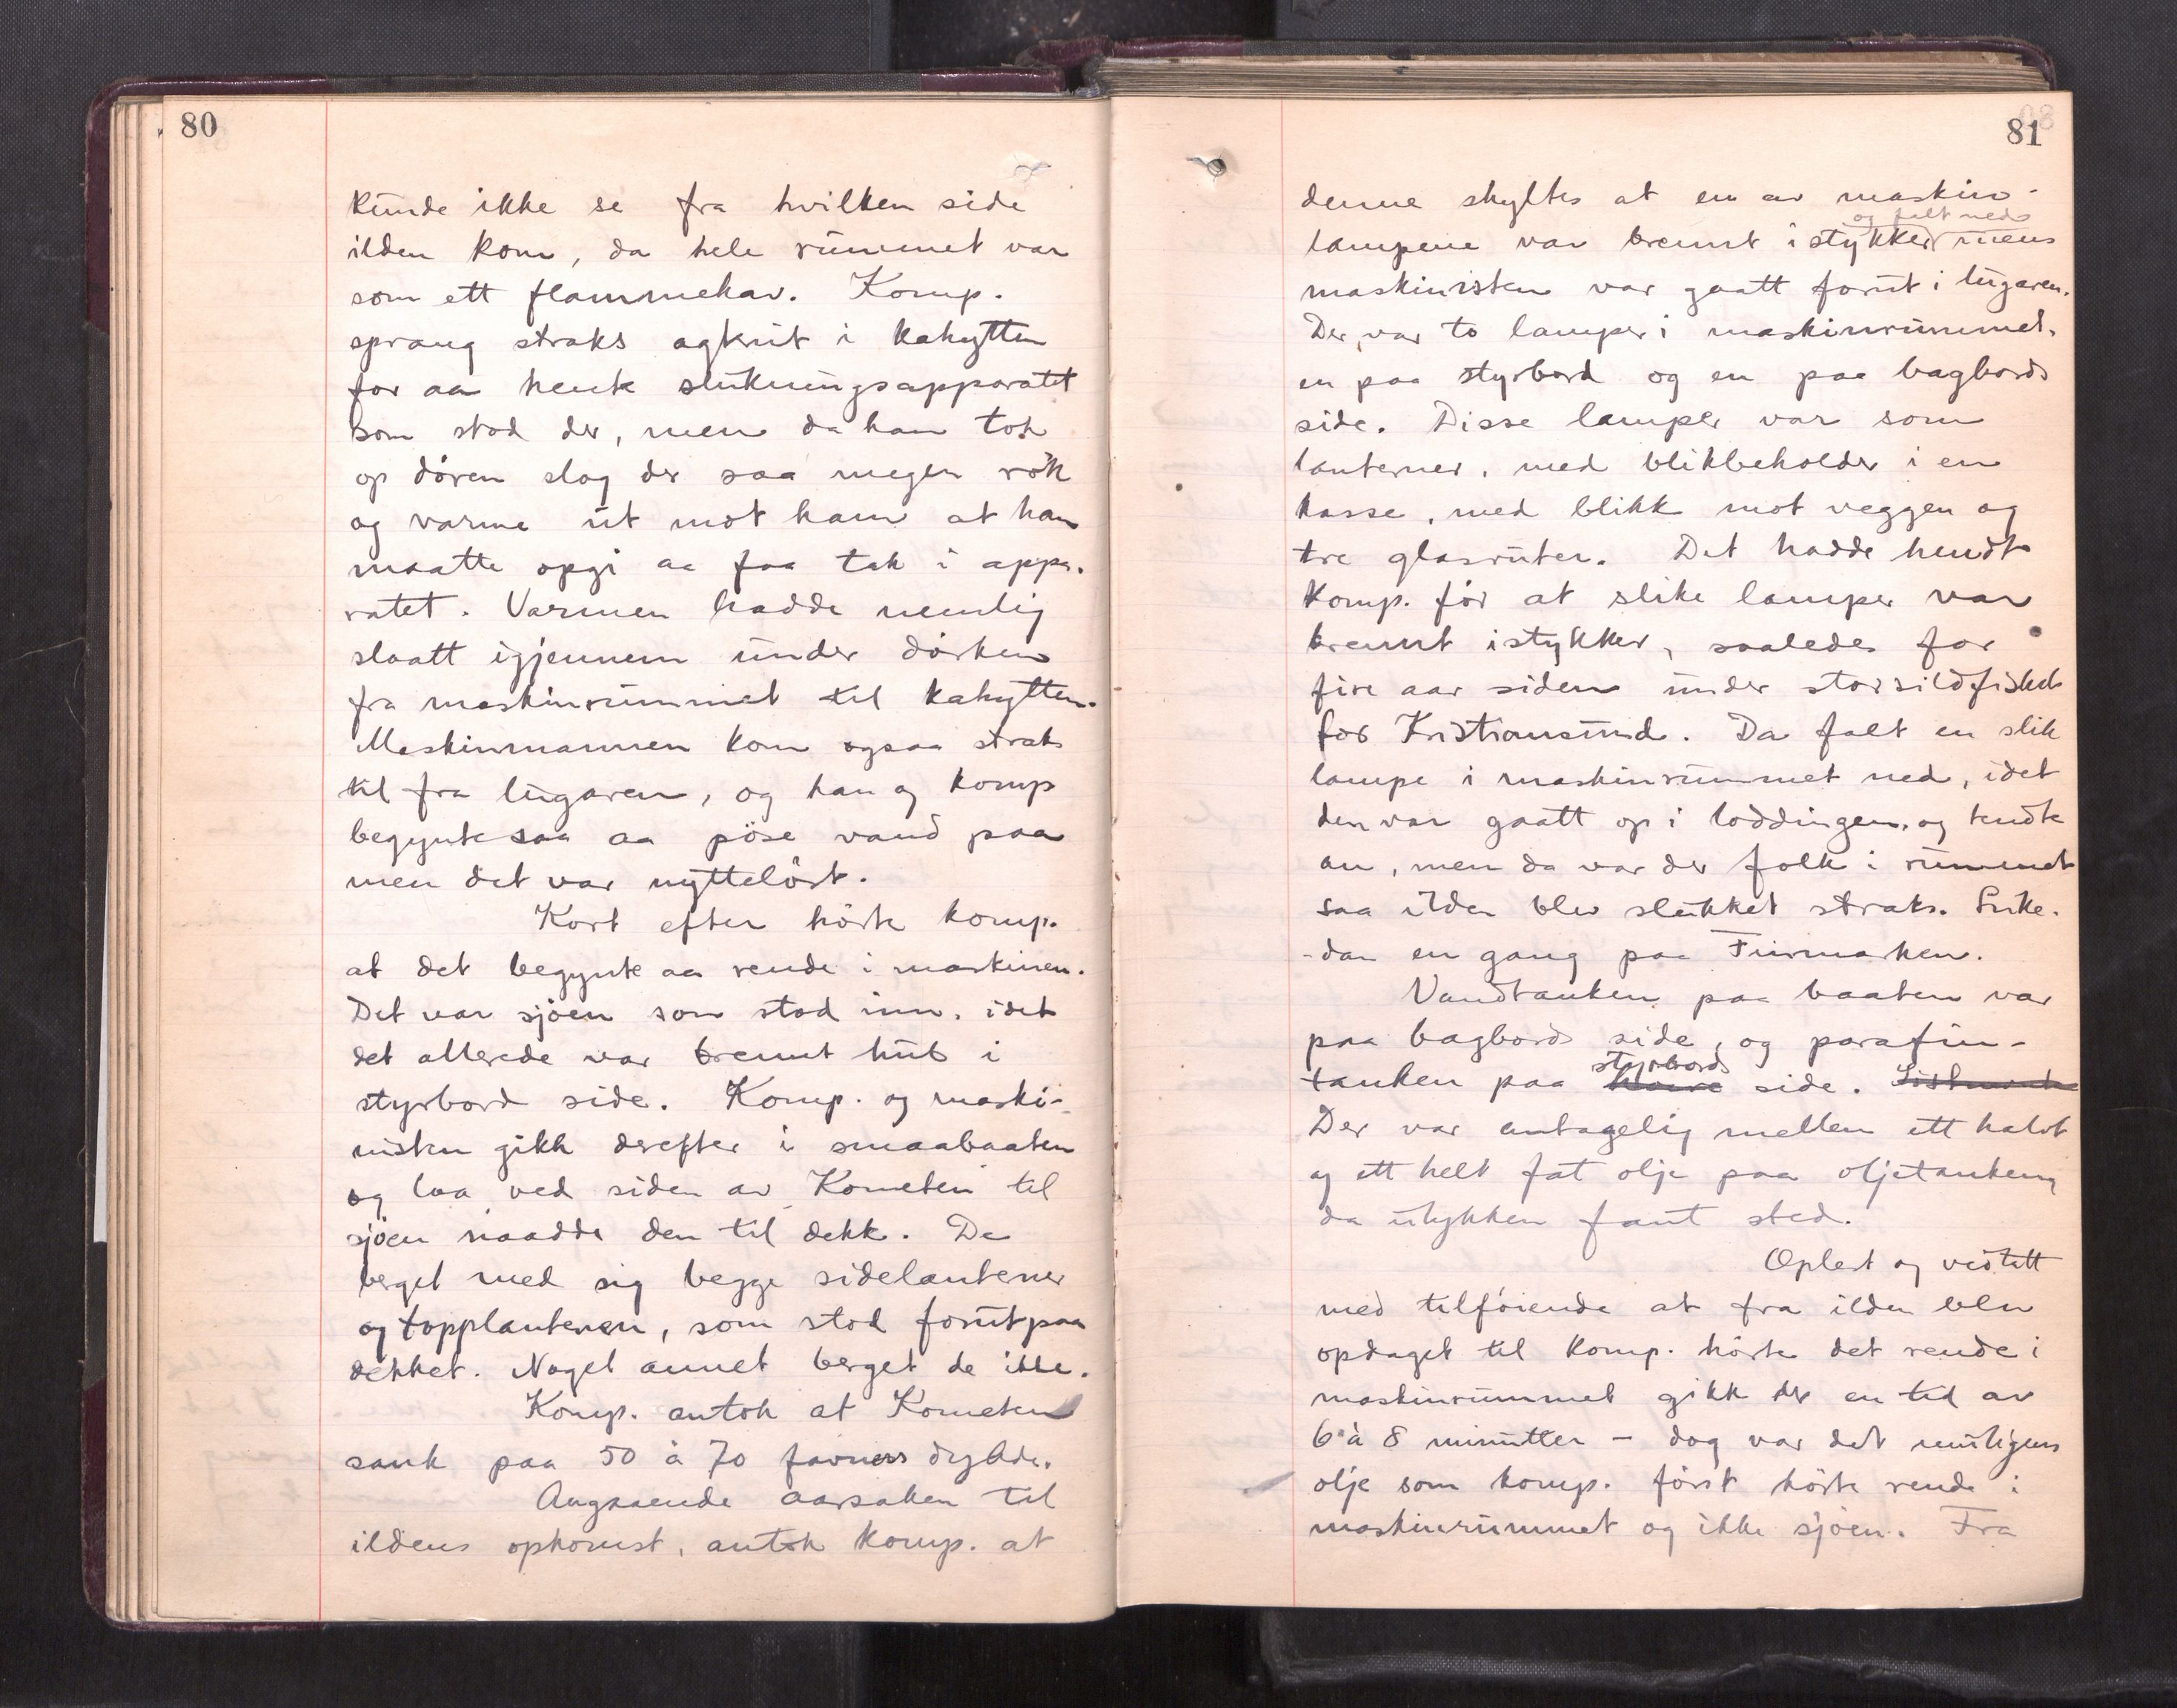 80
kunde ikke se fra hvilken side
ilden kom, da hele rummet var
som ett flammehav. Komp.
sprang straks agterut i kahytten
for aa hente slukningsapparatet
som stod der, men da han tok
op døren slog der saa megen røk
og varme ut mot ham at han
maatte opgi aa faa tak i appa-
ratet. Varmen hadde nemlig
slaatt igjennem under dørken
fra maskinrummet til kahytten.
Maskinmannen kom ogsaa straks
til fra lugaren, og han og komp
begynte saa aa pöse vand paa
men det var nytteløst.
Kort efter hörte komp.
at det begynte aa rende i maskinen.
Det var sjöen som stod inn, idet
det allerede var brennt hul i
styrbord side. Komp. og maski-
nisten gikk derefter i smaabaaten
og laa ved siden av "Kometen" til
sjöen naadde den til dekk. De
berget med sig begge sidelanterner
og topplanternen, som stod forut paa
dekket. Noget annet berget de ikke.
Komp. antok at Kometen
sank paa 50 à 70 favners dybde.
Angaaende aarsaken til
ildens opkomst, antok komp. at
81
denne skyltes at en av maskin-
og falt ned
lampene var brennt istykker mens
maskinisten var gaatt forut i lugaren.
Der var to lamper i maskinrummet,
en paa styrbord og en paa bagbords
side. Disse lamper var som
lanterner, med blikbeholder i en
kasse, med blikk mot veggen og
tre glasruter. Det hadde hendt
komp. för at slike lamper var
brennt istykker, saaledes for
fire aar siden under storsildfisket
for Kristiansund. Da falt en slik
lampe i maskinrummet ned, idet
den var gaatt op i loddingen, og tendte
an, men da var der folk i rummet
saa ilden blev slukket straks. Like-
-dan en gang paa Finmarken.
Vandtanken paa baaten var
paa bagbords side, og parafin-
styrbords
tanken paa side.
Der var antagelig mellem ett halvt
og ett helt fat olje paa oljetanken,
da ulykken fant sted.
Oplest og vedtatt
med tilföiende at fra ilden blev
opdaget til komp. hörte det rende i
maskinrummet gikk der en tid av
6 à 8 minutter - dog var det muligens
olje som komp. först hörte rende i
maskinrummet og ikke sjöen. Fra